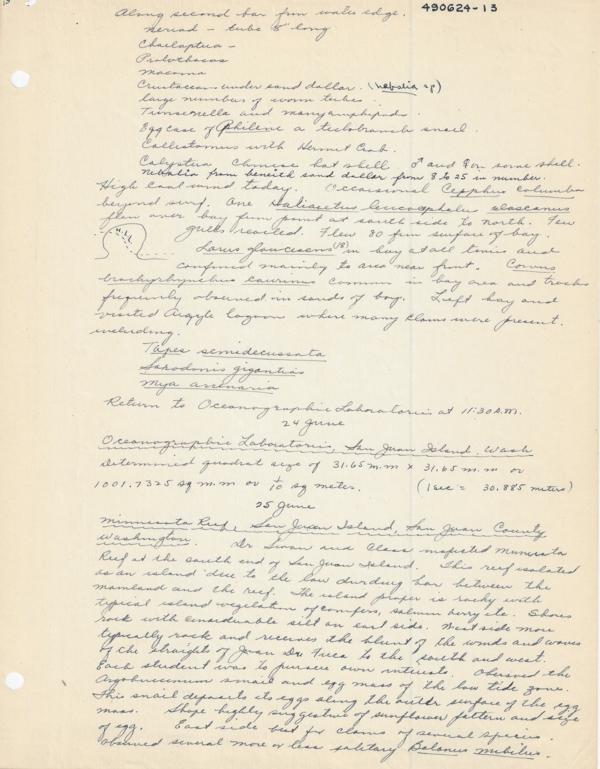 490624-13
Along second bar from water edge.
Nereid - tube 8" long
Chaelaptua -
Protothacas
macoma
Crustacean under sand dollar. (Nebalia sp)
large number of worm tubes.
and many amphipods.
Egg case of Philene a tectobranch snail.
Callostomus with Hermit Crab.
Calyptrea Chinese hat shell. ♂ and ♀ on same shell.
Nebalia from beneath sand dollar from 8 to 25 in number.
High cool wind today. Occassional Cepphus columba
beyond surf. One Haliaeetus leucocephalus alascanus
flew over bay from point at south side to north. Few
gulls reacted. Flew 80 from surface of bay.
HILL
Larus glaucescens (18) in bay at all times and
confined mainly to area near front. Corvus
brachyrhynchus caurinus common in bay area and
frequently observed on sands of bay. Left bay and
visited Argyle Lagoon where many clams were present.
including.
Tapes semidecussata
Saxodomis giganteas
Mya arenaria
Return to Oceanographic Laboratories at 11:30 A.M.
24 June
Oceanographic Laboratories, San Juan Island, Wash
Determined quadrat size of 31.65 m.m x 31.65 m.m or
1001.7325 sq m.m or 1/10 sq meter. ( = 30.885 meters)
25 June
Minnesota Reef, San Juan Island, San Juan County
Washington. Dr Swan and Class inspected Minnesota
Reef at the south end of San Juan Island. This reef isolated
as an island due to the low bar between the
mainland and the reef. The island proper is rocky with
typical island vegetation of conifers, salmon berry etc. Shores
rock with considerable silt on east side. West side more
typically rock and receives the blunt of the winds and waves
of the straights of Juan De Fuca to the south and west.
Each student was to pursue own interests. Observed the
Argobuccinum snail and egg mass of the low tide zone.
This snail deposits its eggs along the outer surface of the egg
mass. Shape highly suggestive of sunflower pattern and size
of egg. East side best for clams of several species.
Observed several more or less solitary Balanus nubilus.